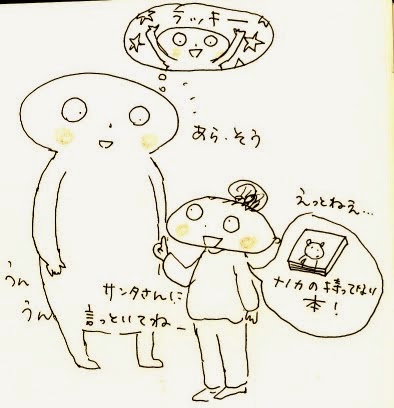 ラッキー
あら、そう
えっとねぇ…
ナノカの持ってない
本!
サンタさんに
言っといてねー
うん
うん